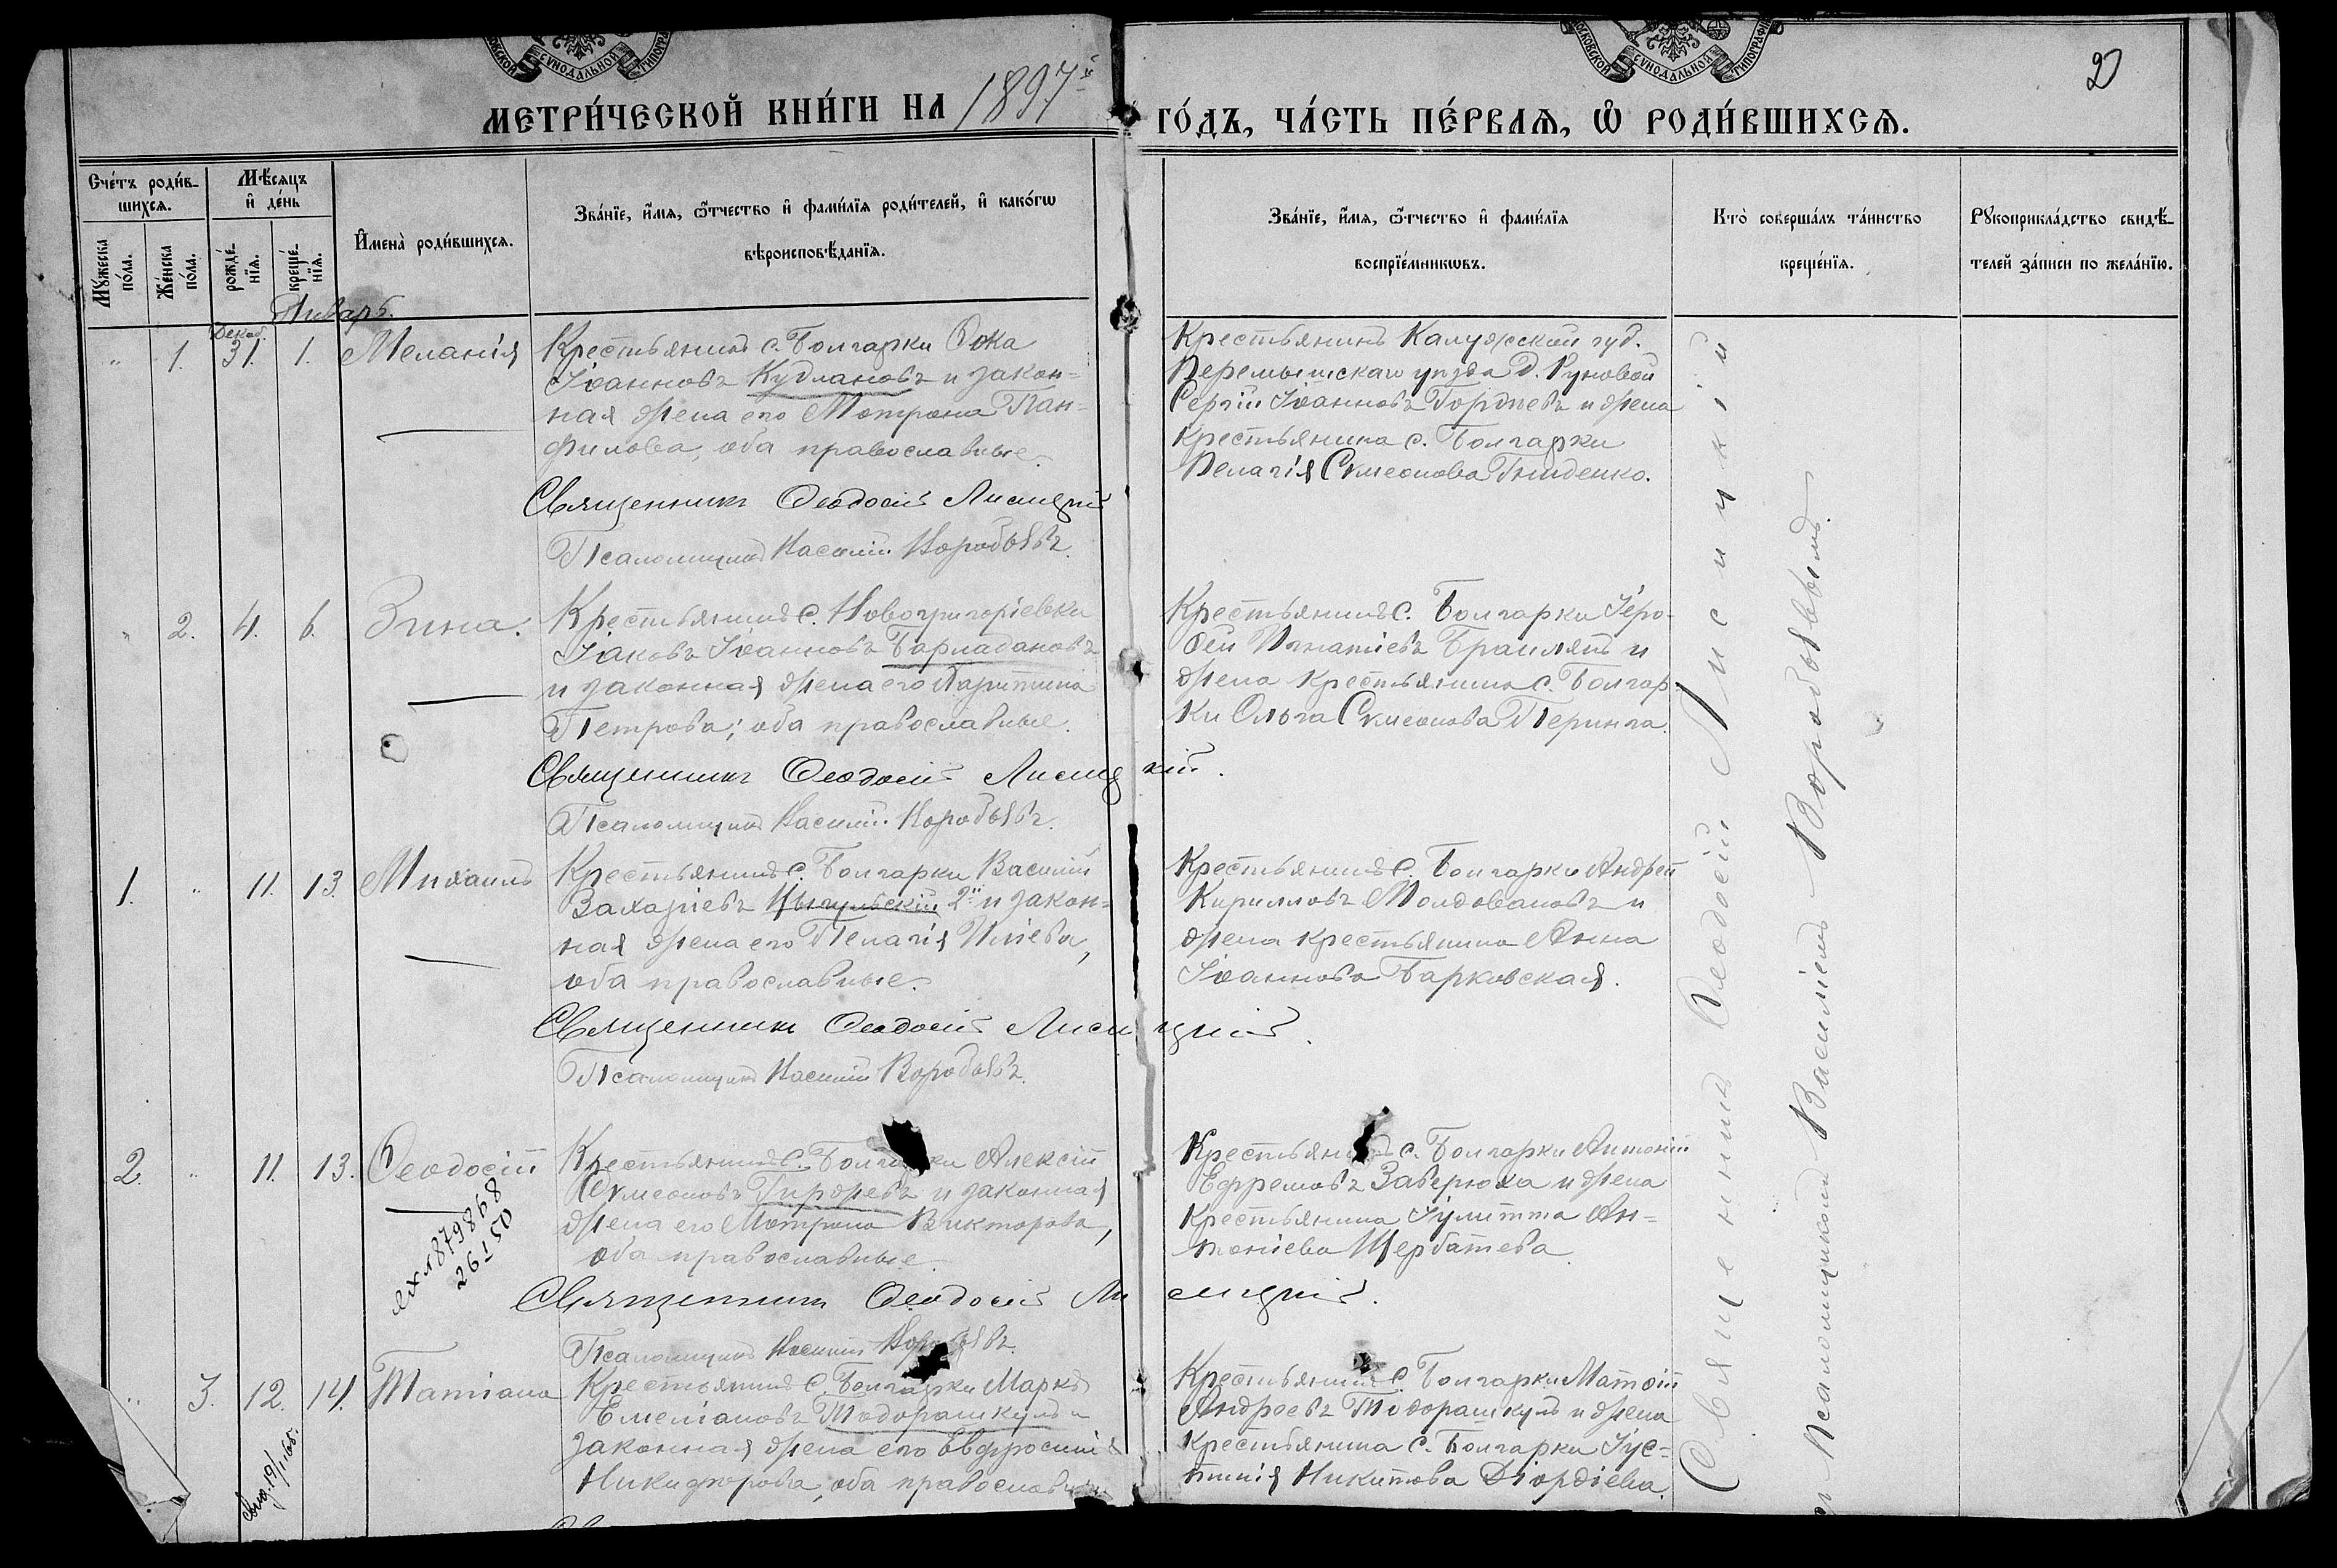 МОСКОВСКОЙ СѴНОДАЛЬНОЙ ТИПОГРАФІИ
МОСКОВСКОЙ СѴНОДАЛЬНОЙ ТИПОГРАФІИ
2
МЕТРИ́ЧЕСКОЙ КНИ́ГИ НА 1897й ГО́ДЪ, ЧА́СТЬ ПЕ́РВАѦ, Ѡ РОДИ́ВШИХСѦ.
Сче́тъ роди́в-
шихсѧ.
Мꙋ́жеска по́ла.
Же́нска по́ла.
Мѣ́сѧцъ
и҆ де́нь
рожде́-
нїѧ.
креще́-
нїѧ.
И҆мена̀ роди́вшихсѧ.
Зва́нїе, и҆́мѧ, ѻ҆́тчество и҆ фами́лїѧ роди́телей, и҆ како́гѡ
вѣроисповѣ́данїѧ.
Зва́нїе, и҆́мѧ, ѻ҆́тчество и҆ фами́лїѧ
воспрїе́мникѡвъ.
Кто̀ соверша́лъ та́инство
креще́нїѧ.
Рꙋкоприкла́дство свидѣ́-
телей за́писи по жела́нїю.
Январь.
Декаб.
" 1. 31. 1. Меланія
Крестьянинъ с. Болгарки Ѳока
Іоанновъ Кудлановъ и закон=
ная жена его Мотрона Пан=
филова, оба православные.
Священникъ Ѳеодосій Лисицкій
Псаломщикъ Василій Воробьевъ.
Крестьянинъ Калужской губ.
Перемышскаго уѣзда д. Руновой
Сергій Іоанновъ Гордѣевъ и жена
крестьянина с. Болгарки
Пелагія Сѵмеонова Гниденко.
" 2. 4. 6. Зина.
Крестьянинъ с. Новогригоріевки
Іаковъ Іоанновъ Барладановъ
и законная жена его Харитина
Петрова; оба православные.
Священникъ Ѳеодосій Лисицкій.
Псаломщикъ Василій Воробьевъ.
Крестьянинъ с. Болгарки Іеро-
фей Игнатіевъ Браилянъ и
жена крестьянина с. Болгар-
ки Ольга Сѵмеонова Перинга.
1. " 11. 13. Михаилъ
Крестьянинъ с. Болгарки Василій
Захаріевъ Цыгульскій 2й и закон=
ная жена его Пелагія Иліева,
оба православные.
Священникъ Ѳеодосій Лисицкій.
Псаломщикъ Василій Воробьевъ.
Крестьянинъ с. Болгарки Андрей
Кирилловъ Молдовановъ и
жена крестьянина Анна
Іоаннова Барковская.
2. " 11. 13. Ѳеодосій
ЯХ 1879868
26 I 50
Крестьянинъ с. Болгарки Алексій
Сѵмеоновъ Гиржевъ и законная
жена его Мотрона Викторова,
оба православные.
Священникъ Ѳеодосій Лисицкій.
Псаломщикъ Василій Воробьевъ.
Крестьянинъ с. Болгарки Антоній
Ефремовъ Заверюха и жена
крестьянина Іулитта Ан=
тоніева Щербатева
" 3. 12. 14. Татіана
19/I 65.
Крестьянинъ с. Болгарки Маркъ
Емеліановъ Тодорашкулъ и
законная жена его Евфросинія
Никифорова, оба православные
Крестьянинъ с. Болгарки Матѳій
Андреевъ Тодорашкулъ и жена
крестьянина с. Болгарки Іус=
тинія Никитова Діордіева.
Священникъ Ѳеодосій Лисицкій
съ Псаломщикомъ Василіемъ Воробьевымъ.